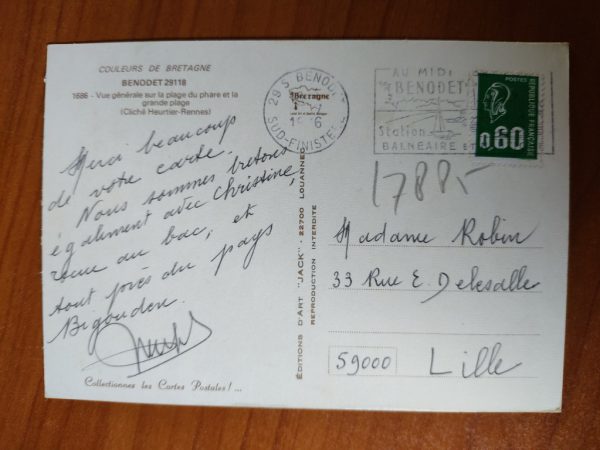 COULEURS DE BRETAGNE
BENODET 29118
1686 - Vue générale sur la plage du phare et la
grande plage
(Cliché Heurtier-Rennes)
Merci beaucoup
de votre carte.
Nous sommes bretons
également avec Christine,
venue au bac, et
tout près du pays
Bigouden.
Collectionnez les Cartes Postales ! ...
EDITIONS D'ART "JACK" - 22700 LOUANNEC
REPRODUCTION INTERDITE
29 S. BENODET
Bretagne
SUD-FINISTERE
AU MIDI
BENODET
Station
BALNEAIRE
POSTES
0,60
REPUBLIQUE FRANÇAISE
17885
Madame Robin
33 Rue E. Delesalle
59000 Lille